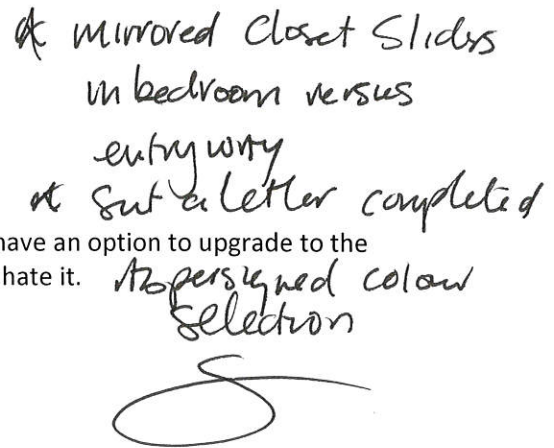 * mirrored Closet Sliders
in bedroom versus
entryway
* Sent a letter completed
have an option to upgrade to the
hate it. As per signed colour
Selection